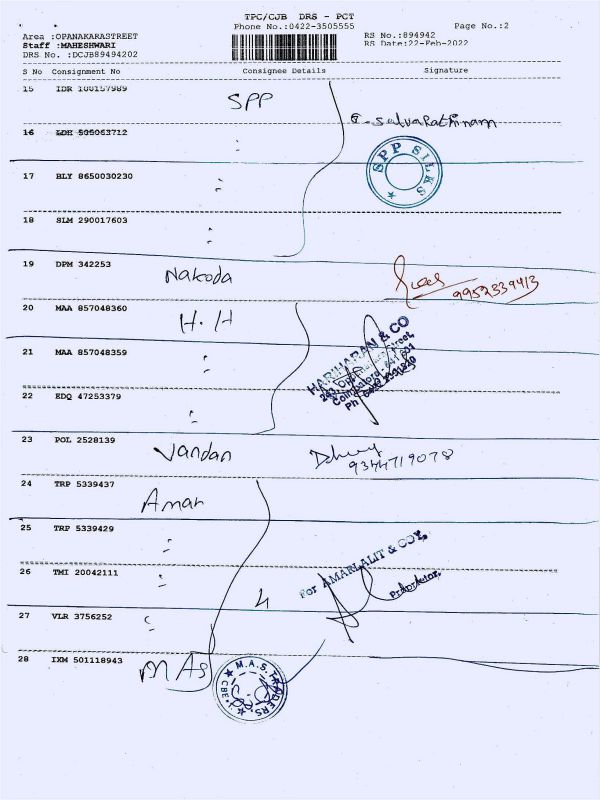 TPC/CJB DRS - PCT
Phone No.:0422-3505555 Page No.:2
Area :OPANAKARASTREET RS No.:894942
Staff :MAHESHWARI RS Date:22-Feb-2022
DRS No. :DCJB89494202
S No Consignment No Consignee Details Signature
15 IDR 100157989 SPP
E. Selvarathinam
16 LDH 505063712 "
SPP SILKS
17 BLY 8650030230 "
18 SLM 290017603 "
19 DPM 342253 Nakoda 9952339413
20 MAA 857048360 H.H
HARIHARAN & CO
21 MAA 857048359 "
Street,
Coimbatore
Ph
22 EDQ 47253379 "
23 POL 2528139 Vandan 9344719078
24 TRP 5339437 Aman
25 TRP 5339429 "
26 TMI 20042111 "
For AMARLALIT & COY.
Proprietor
27 VLR 3756252 " 4
28 IXM 501118943 MAS
M.A.S.TRADERS
CBE.